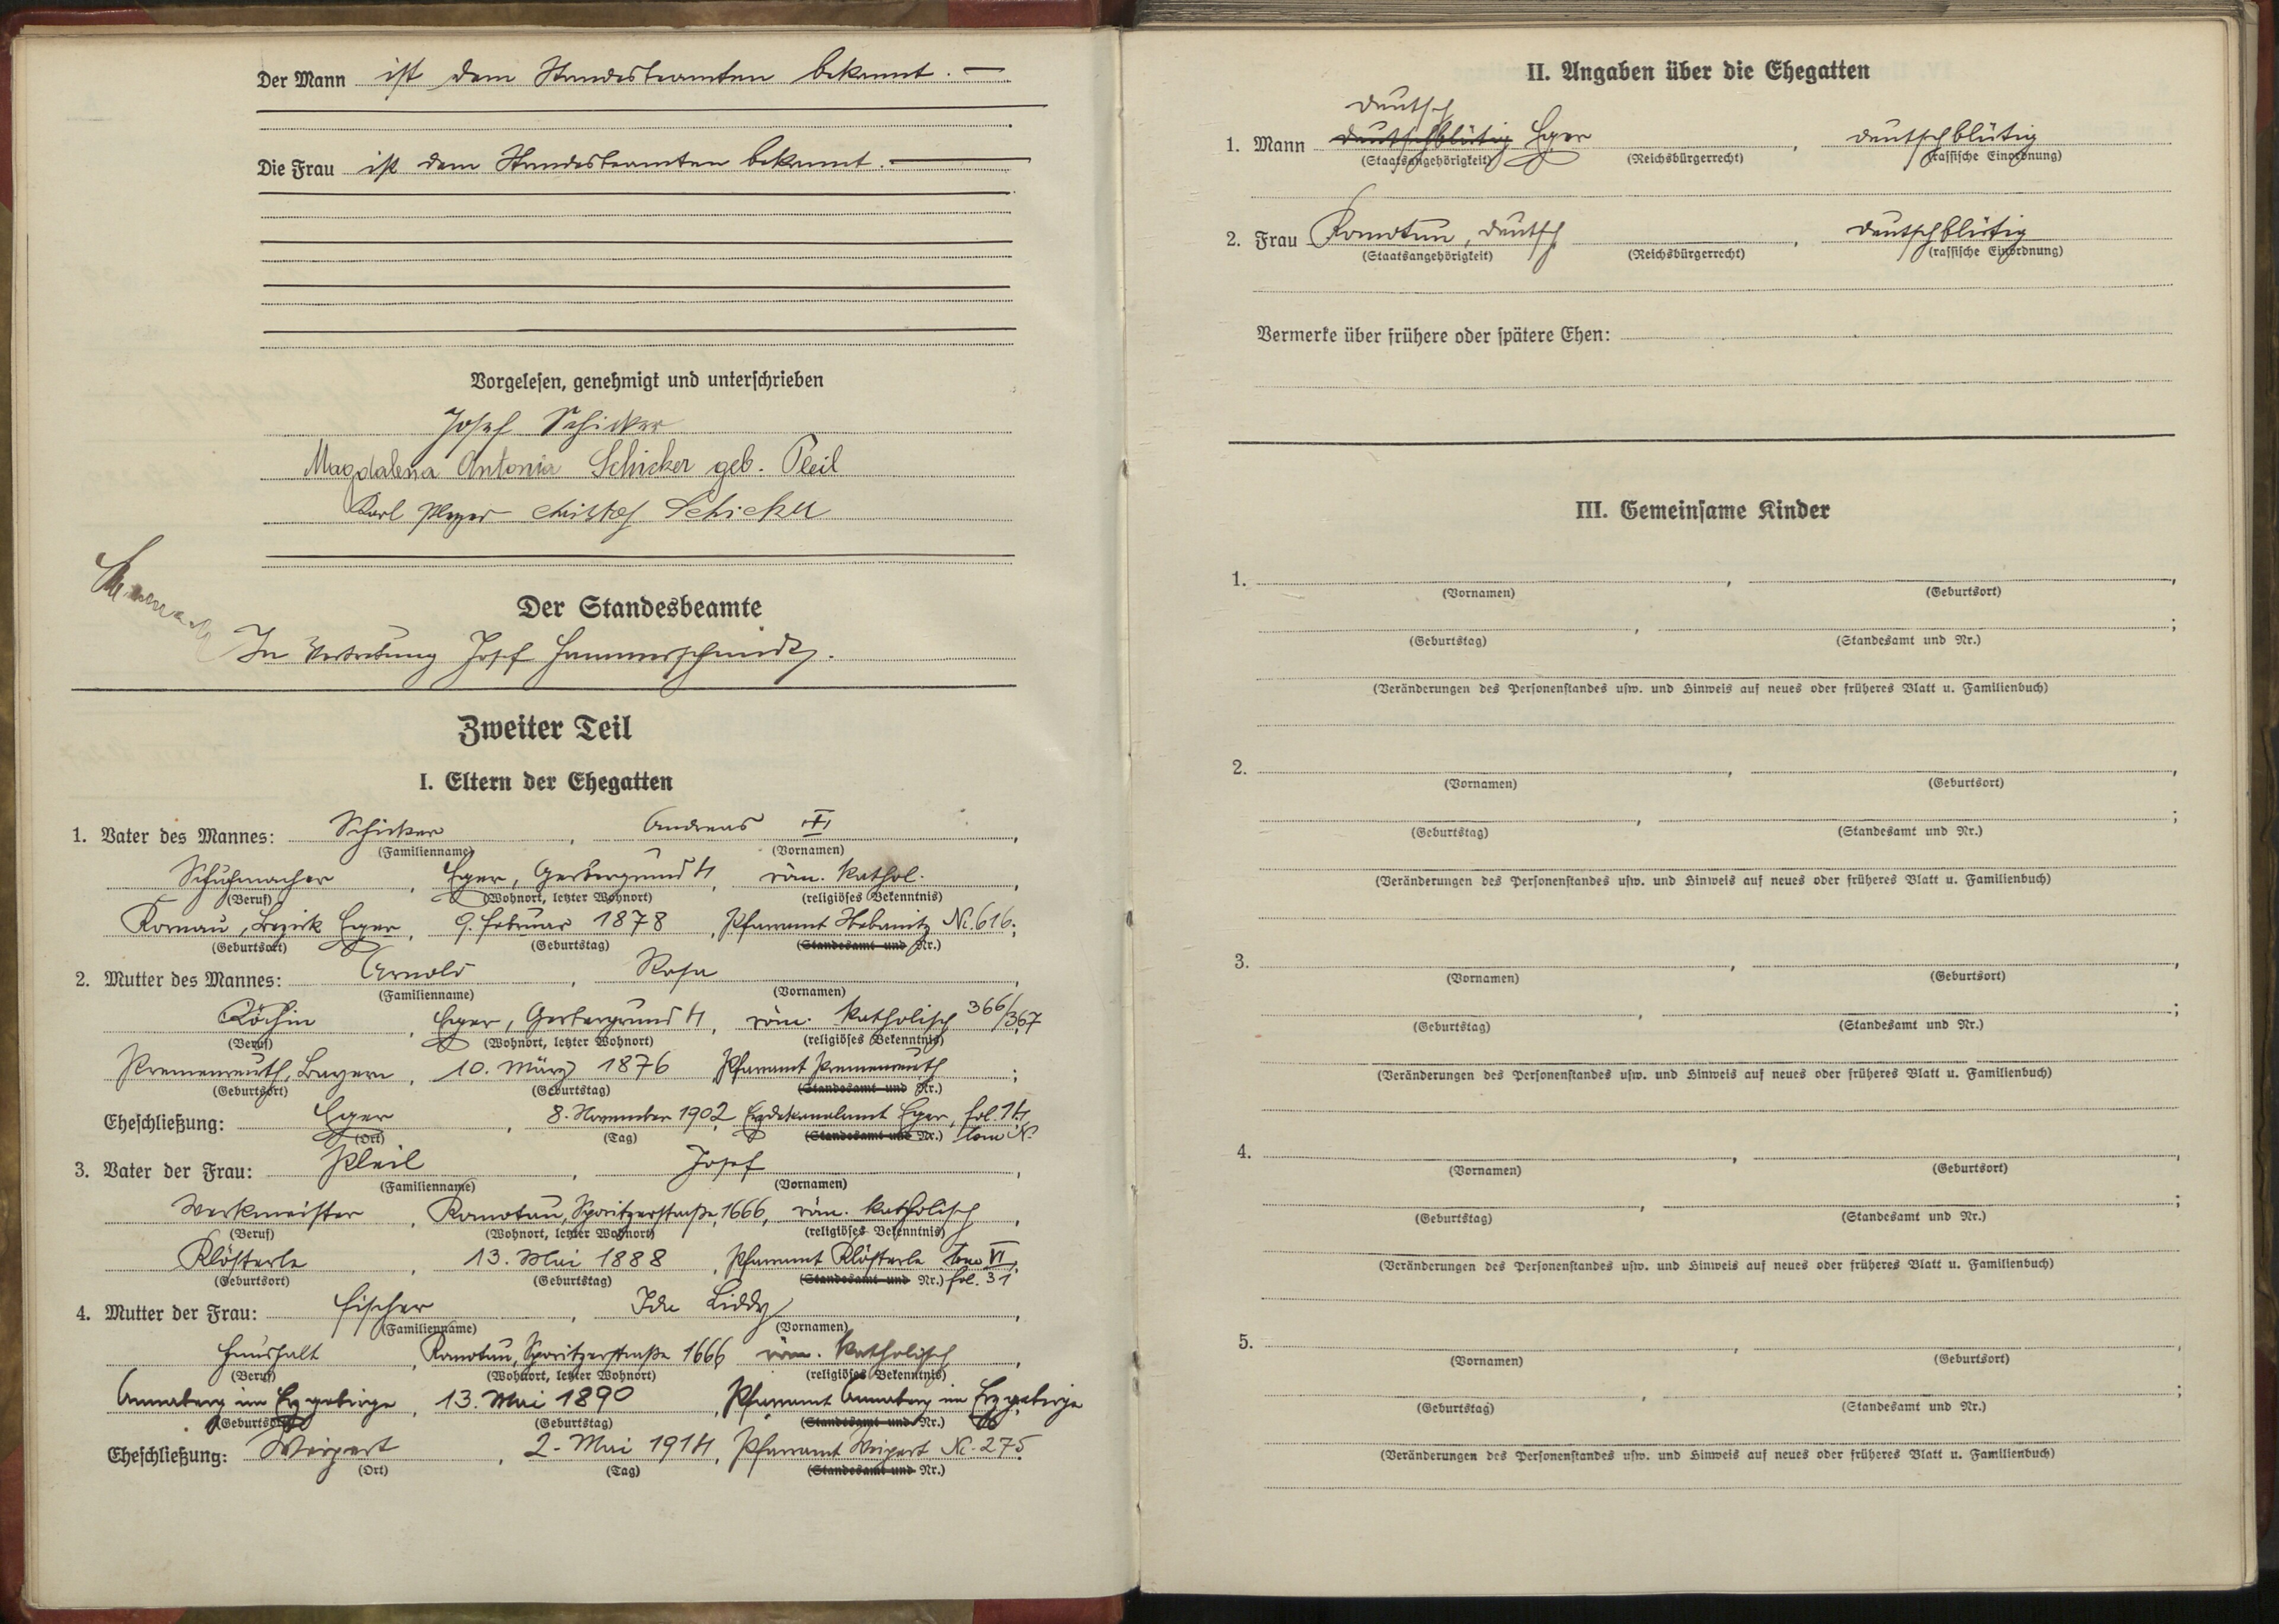 Der Mann ist dem Standesbeamten bekannt. —
Die Frau ist dem Standesbeamten bekannt. —
Vorgelesen, genehmigt und unterschrieben
Josef Schicker
Magdalena Antonia Schicker geb. Pleil
Karl Pleyer Christof Schicker
Der Standesbeamte
In Vertretung Josef Hammerschmidt.
Zweiter Teil
I. Eltern der Ehegatten
1. Vater des Mannes: Schicker, Andreas
(Familienname) (Vornamen)
Schuhmacher, Eger, Gerbergrund 4, röm. kathol.,
(Beruf) (Wohnort, letzter Wohnort) (religiöses Bekenntnis)
Kornau, Bezirk Eger, 9. Februar 1878, Pfarramt Nebanitz Nr. 616;
(Geburtsort) (Geburtstag) (Standesamt und Nr.)
2. Mutter des Mannes: Arnold, Rosa,
(Familienname) (Vornamen)
Köchin, Eger, Gerbergrund 4, röm. katholisch 366/367
(Beruf) (Wohnort, letzter Wohnort) (religiöses Bekenntnis)
Premenreuth, Bayern, 10. März 1876, Pfarramt Premenreuth;
(Geburtsort) (Geburtstag) (Standesamt und Nr.)
Eheschließung: Eger, 8. November 1902 Erzdekanalamt Eger, fol. 14
(Ort) (Tag) (Standesamt und Nr.) tom
3. Vater der Frau: Pleil, Josef,
(Familienname) (Vornamen)
Werkmeister, Komotau, Sporitzerstraße 1666, röm. katholisch,
(Beruf) (Wohnort, letzter Wohnort) (religiöses Bekenntnis)
Klösterle, 13. Mai 1888, Pfarramt Klösterle tom VI,
(Geburtsort) (Geburtstag) (Standesamt und Nr.) fol. 31
4. Mutter der Frau: Fischer, Ida Liddy,
(Familienname) (Vornamen)
Haushalt, Komotau, Sporitzerstraße 1666 röm. katholisch,
(Beruf) (Wohnort, letzter Wohnort) (religiöses Bekenntnis)
Annaberg im Erzgebirge, 13. Mai 1890, Pfarramt Annaberg im Erzgebirge
(Geburtsort) (Geburtstag) (Standesamt und Nr.)
Eheschließung: Weipert, 2. Mai 1914, Pfarramt Weipert Nr. 275
(Ort) (Tag) (Standesamt und Nr.)
II. Angaben über die Ehegatten
deutsch
1. Mann deutschblütig Eger, deutschblütig
(Staatsangehörigkeit) (Reichsbürgerrecht) (rassische Einordnung)
2. Frau Komotau, deutsch, deutschblütig
(Staatsangehörigkeit) (Reichsbürgerrecht) (rassische Einordnung)
Vermerke über frühere oder spätere Ehen:
III. Gemeinsame Kinder
1.
(Vornamen) (Geburtsort)
(Geburtstag) (Standesamt und Nr.)
(Veränderungen des Personenstandes usw. und Hinweis auf neues oder früheres Blatt u. Familienbuch)
2.
(Vornamen) (Geburtsort)
(Geburtstag) (Standesamt und Nr.)
(Veränderungen des Personenstandes usw. und Hinweis auf neues oder früheres Blatt u. Familienbuch)
3.
(Vornamen) (Geburtsort)
(Geburtstag) (Standesamt und Nr.)
(Veränderungen des Personenstandes usw. und Hinweis auf neues oder früheres Blatt u. Familienbuch)
4.
(Vornamen) (Geburtsort)
(Geburtstag) (Standesamt und Nr.)
(Veränderungen des Personenstandes usw. und Hinweis auf neues oder früheres Blatt u. Familienbuch)
5.
(Vornamen) (Geburtsort)
(Geburtstag) (Standesamt und Nr.)
(Veränderungen des Personenstandes usw. und Hinweis auf neues oder früheres Blatt u. Familienbuch)